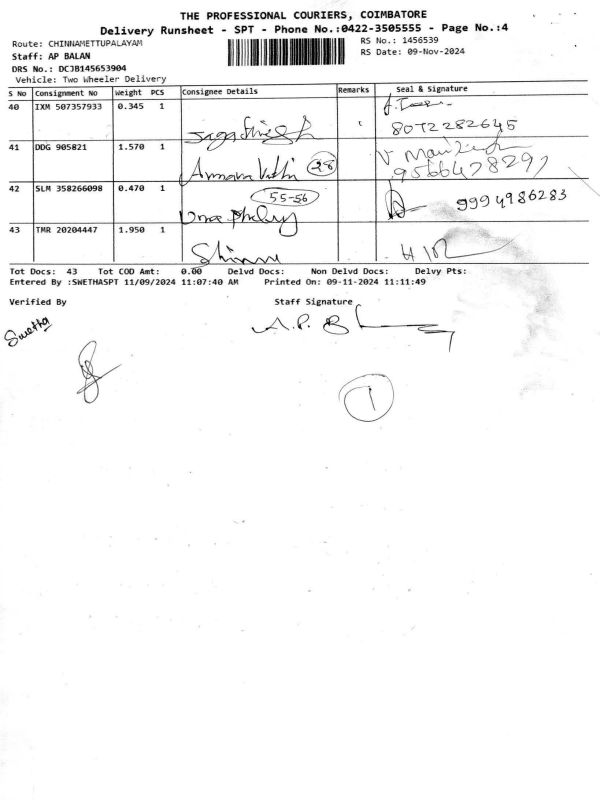 THE PROFESSIONAL COURIERS, COIMBATORE
Delivery Runsheet - SPT - Phone No.:0422-3505555 - Page No.:4
Route: CHINNAMETTUPALAYAM
RS No.: 1456539
Staff: AP BALAN
RS Date: 09-Nov-2024
DRS No.: DCJB145653904
Vehicle: Two Wheeler Delivery
S No Consignment No Weight PCS Consignee Details Remarks Seal & Signature
40 IXM 507357933 0.345 1
8072282645
41 DDG 905821 1.570 1
28
9566478297
42 SLM 358266098 0.470 1 55-56
9994986283
43 TMR 20204447 1.950 1
Tot Docs: 43 Tot COD Amt: 0.00 Delvd Docs: Non Delvd Docs: Delvy Pts:
Entered By :SWETHASPT 11/09/2024 11:07:40 AM Printed On: 09-11-2024 11:11:49
Verified By Staff Signature
Swetha
A.P. B
1